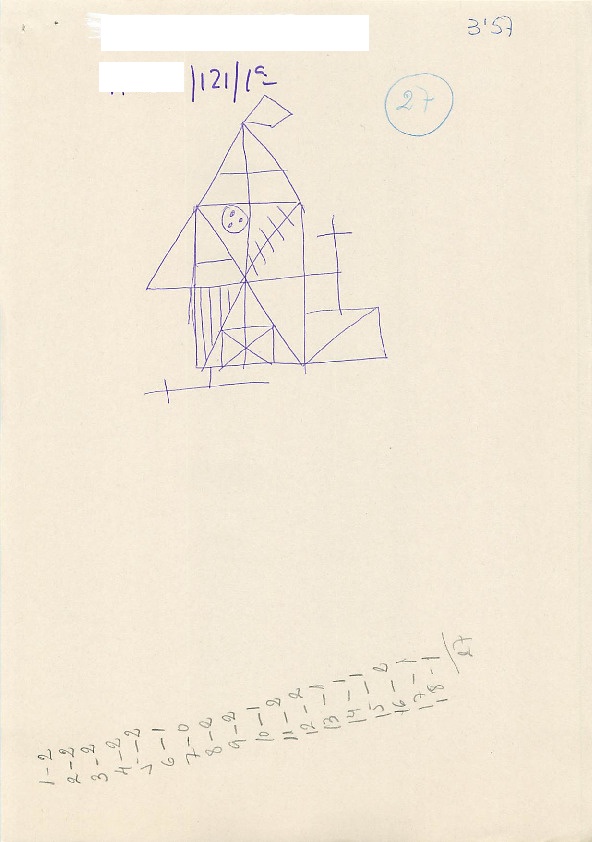 3'57
/121/1ª
27
1-2
2-2
3-2
4-2
5-2
6-1
7-0
8-2
9-2
10-1
11-2
12-2
13-1
14-1
15-1
16-2
17-1
18-1
/27